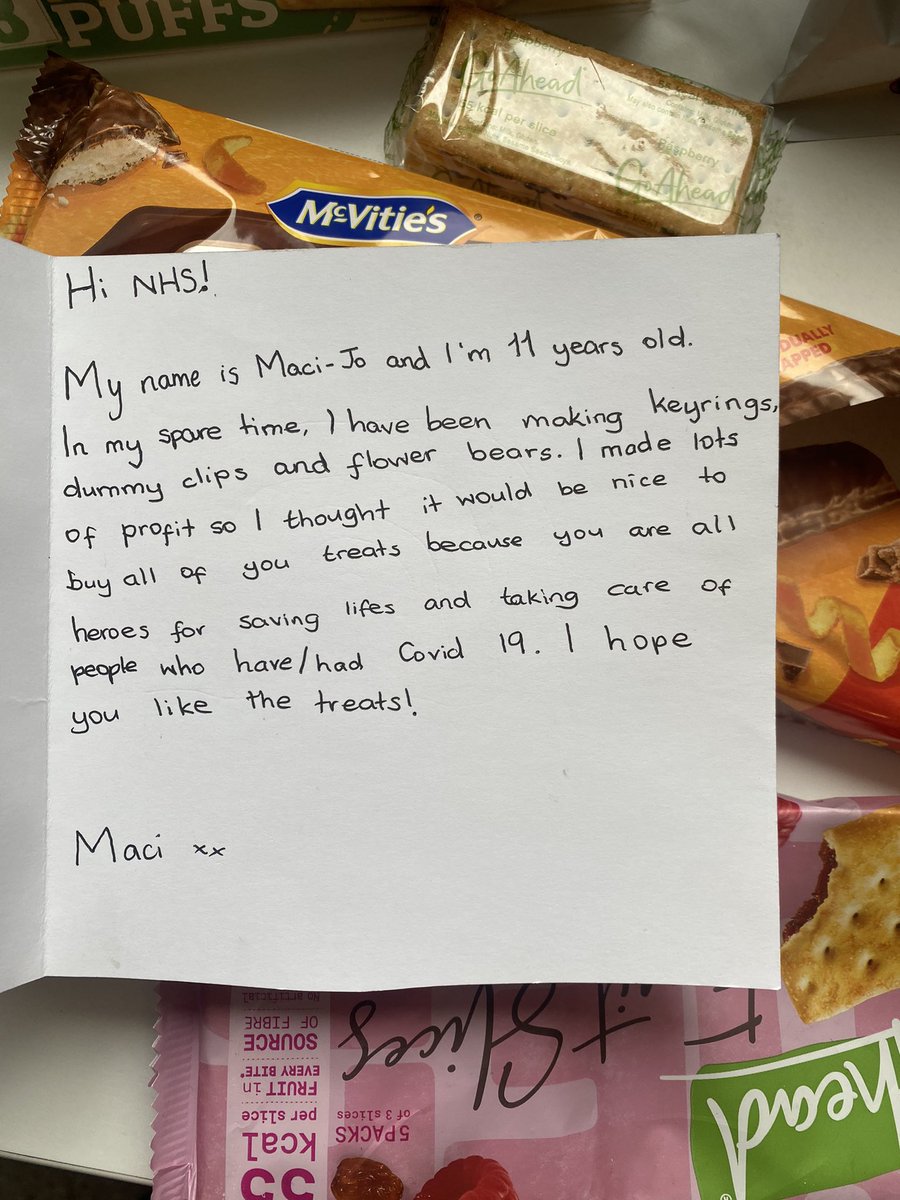 PUFFS
GoAhead
55 kcal per slice
Raspberry
GoAhead
McVitie's
Hi NHS!
My name is Maci-Jo and I'm 11 years old.
In my spare time, I have been making keyrings,
dummy clips and flower bears. I made lots
of profit so I thought it would be nice to
buy all of you treats because you are all
heroes for saving lifes and taking care of
people who have/had Covid 19. I hope
you like the treats!
Maci xx
SOURCE
OF FIBRE
FRUIT in
EVERY BITE*
55
kcal
per slice
5 PACKS
of 3 slices
Slices